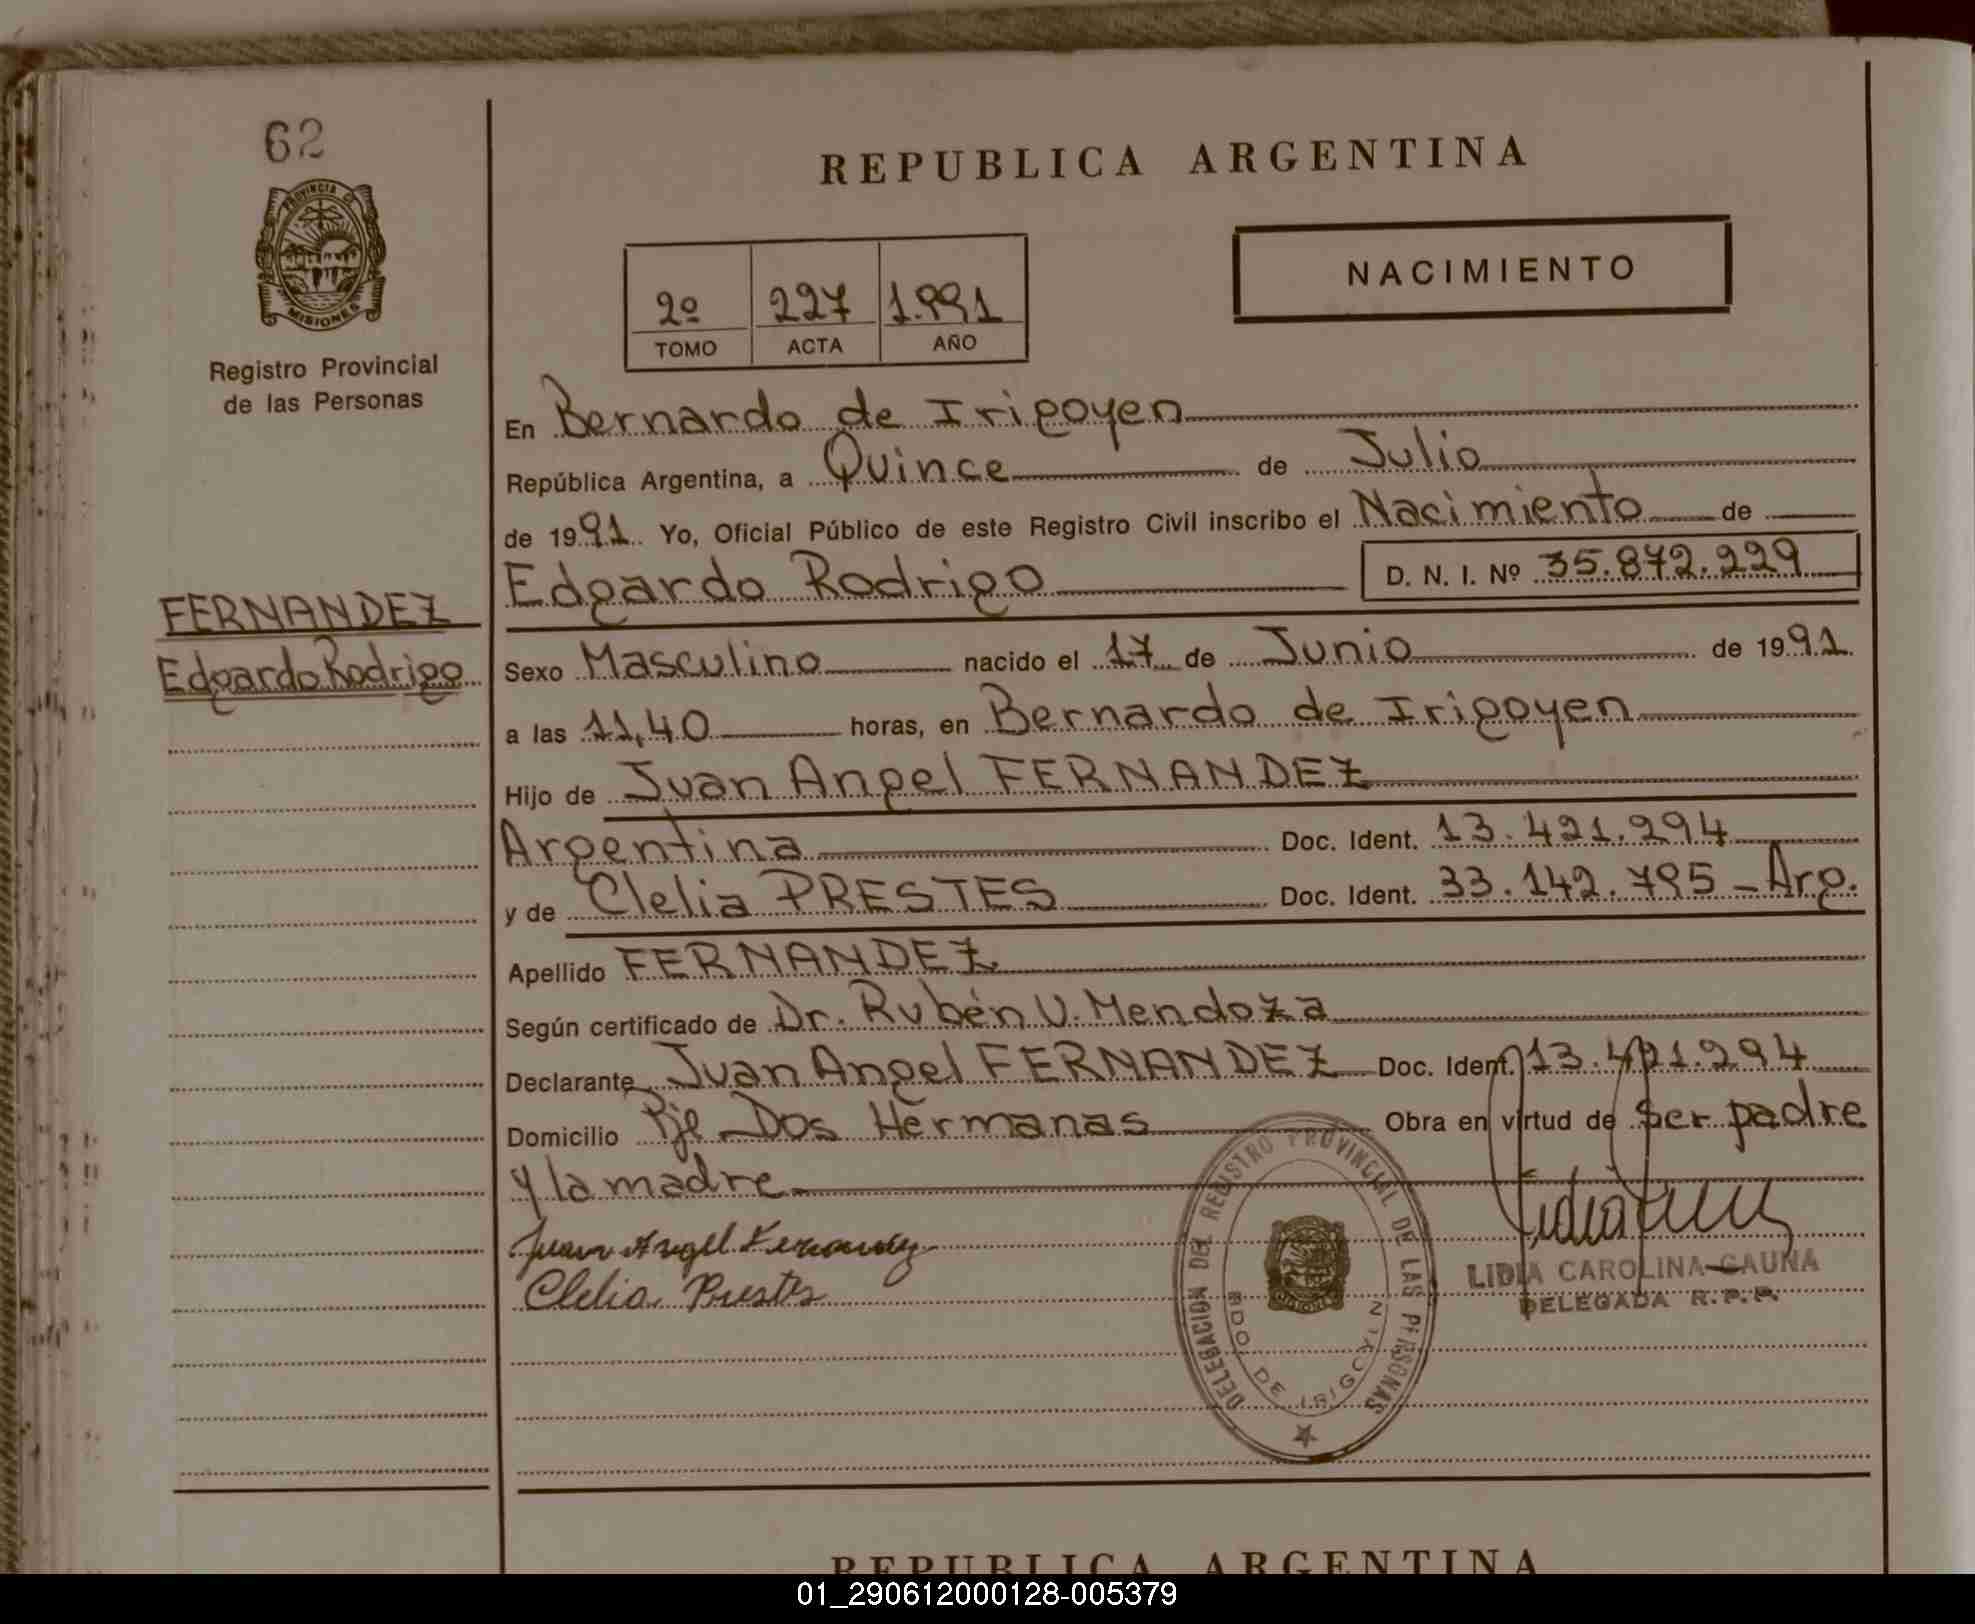 62
PROVINCIA DE
MISIONES
Registro Provincial
de las Personas
FERNANDEZ
Edgardo Rodrigo
REPUBLICA ARGENTINA
2º 227 1.991
TOMO ACTA AÑO
NACIMIENTO
En Bernardo de Irigoyen
República Argentina, a Quince de Julio
de 1991 Yo, Oficial Público de este Registro Civil inscribo el Nacimiento de
Edgardo Rodrigo D. N. I. Nº 35.872.229
Sexo Masculino nacido el 17 de Junio de 1991
a las 11,40 horas, en Bernardo de Irigoyen
Hijo de Juan Angel FERNANDEZ
Argentina Doc. Ident. 13.421.294
y de Clelia PRESTES Doc. Ident. 33.142.795 - Arg.
Apellido FERNANDEZ
Según certificado de Dr. Rubén U. Mendoza
Declarante Juan Angel FERNANDEZ Doc. Ident. 13.421.294
Domicilio Pje Dos Hermanas Obra en virtud de Ser padre
y la madre
Juan Angel Fernandez
Clelia Prestes
DELEGACION DEL REGISTRO PROVINCIAL DE LAS PERSONAS
BDO. DE IRIGOYEN
LIDIA CAROLINA GAUNA
DELEGADA R.P.P.
REPUBLICA ARGENTINA
01_290612000128-005379